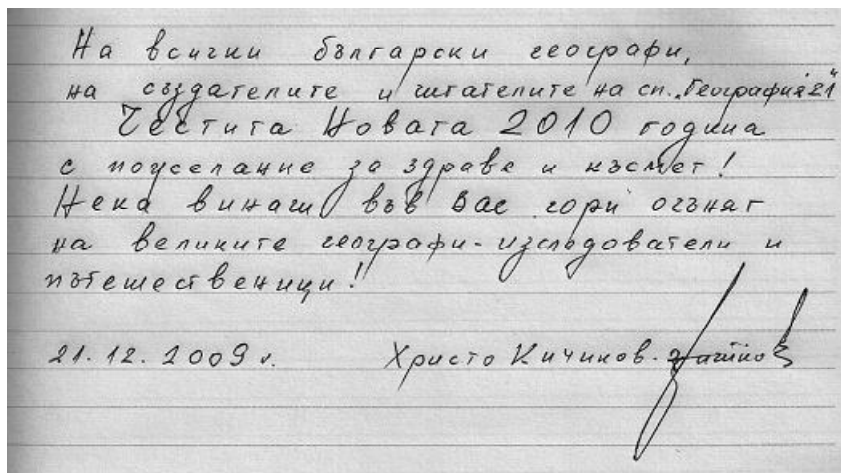 На всички български географи,
на създателите и читателите на сп. „География'21"
Честита Новата 2010 година
с пожелание за здраве и късмет!
Нека винаги във Вас гори огънят
на великите географи-изследователи и
пътешественици!
21.12.2009 г. Христо Кичиков.